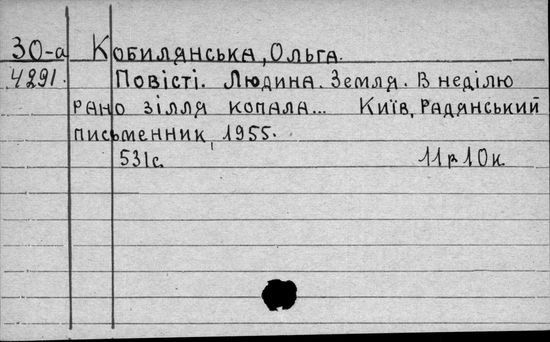 30-а Кобилянська, Ольга.
4291. Повісті. Людина. Земля. В неділю
рано зілля копала... Київ, Радянський
письменник, 1955.
531с. 11р10к.